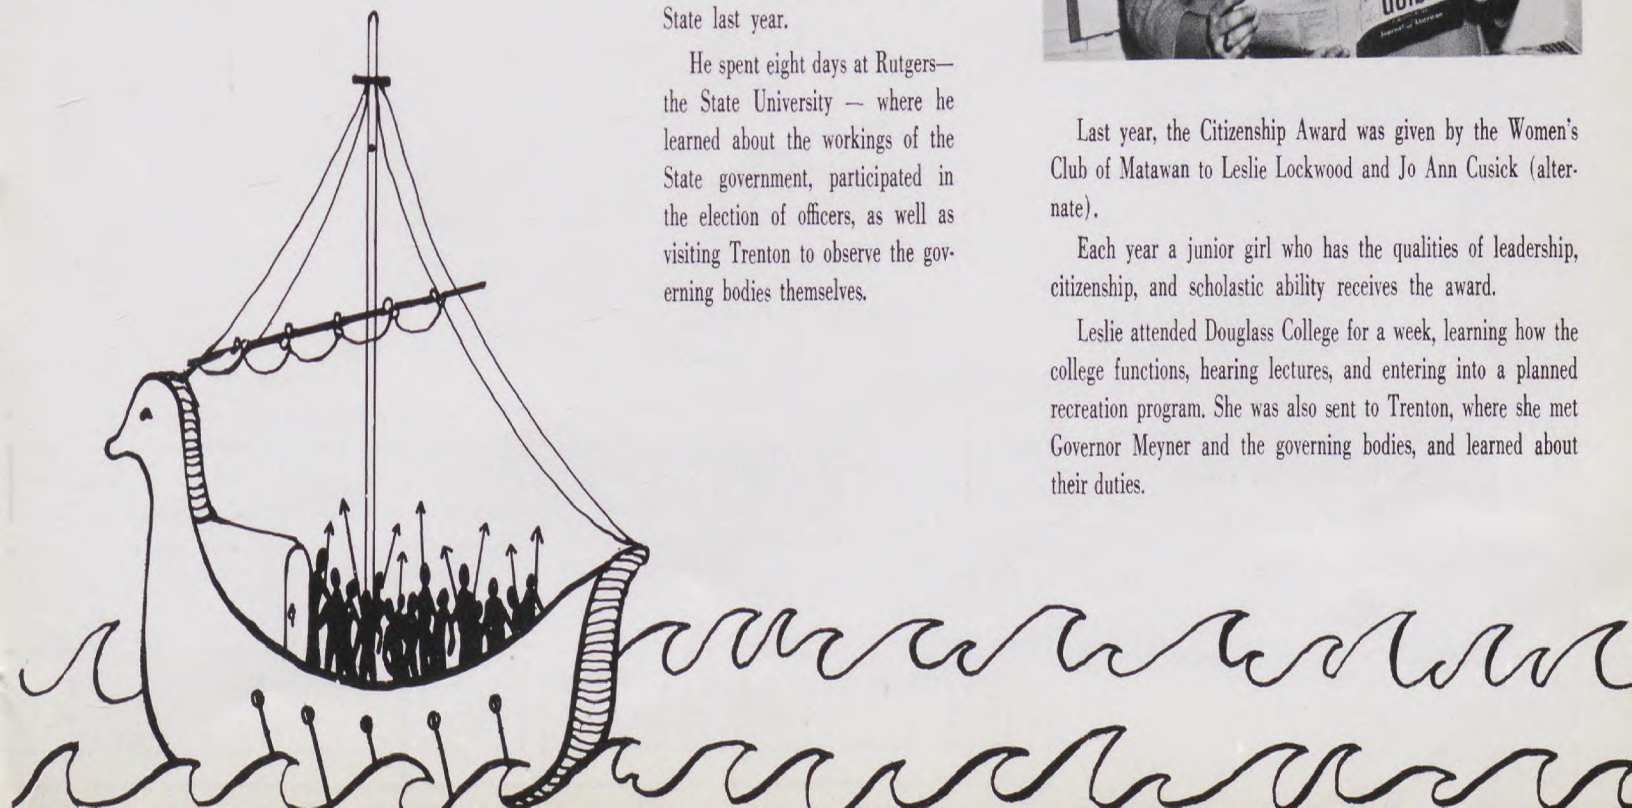 State last year.
He spent eight days at Rutgers—
the State University — where he
learned about the workings of the
State government, participated in
the election of officers, as well as
visiting Trenton to observe the gov-
erning bodies themselves.
Last year, the Citizenship Award was given by the Women's
Club of Matawan to Leslie Lockwood and Jo Ann Cusick (alter-
nate).
Each year a junior girl who has the qualities of leadership,
citizenship, and scholastic ability receives the award.
Leslie attended Douglass College for a week, learning how the
college functions, hearing lectures, and entering into a planned
recreation program. She was also sent to Trenton, where she met
Governor Meyner and the governing bodies, and learned about
their duties.